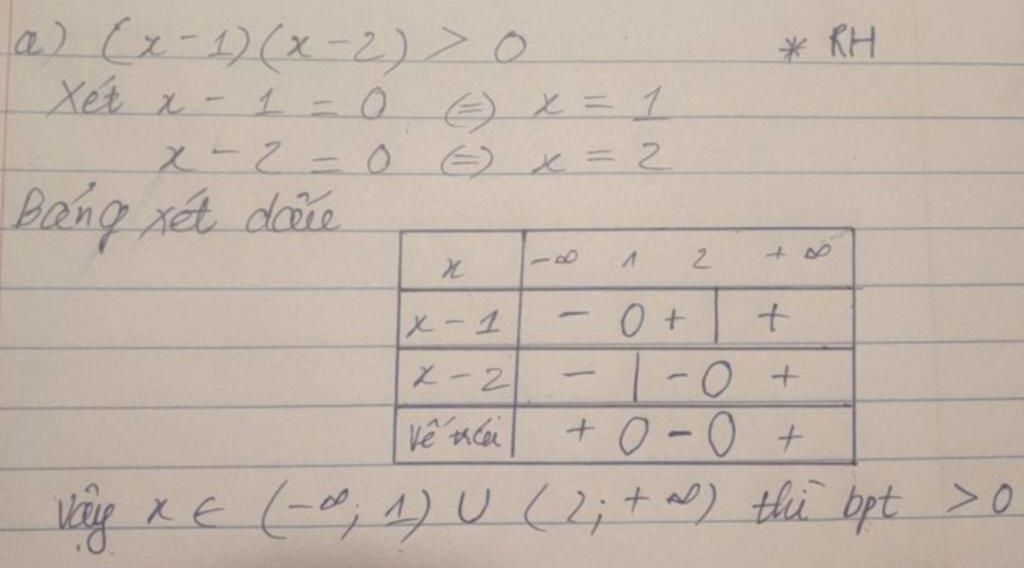 a) (x-1)(x-2) > 0 * RH
Xét x - 1 = 0 (=) x = 1
x - 2 = 0 (=) x = 2
Bảng xét dấu
x -∞ 1 2 +∞
x-1 - 0 + | +
x-2 - | - 0 +
Vế trái + 0 - 0 +
Vậy x ∈ (-∞; 1) ∪ (2; +∞) thì bpt > 0